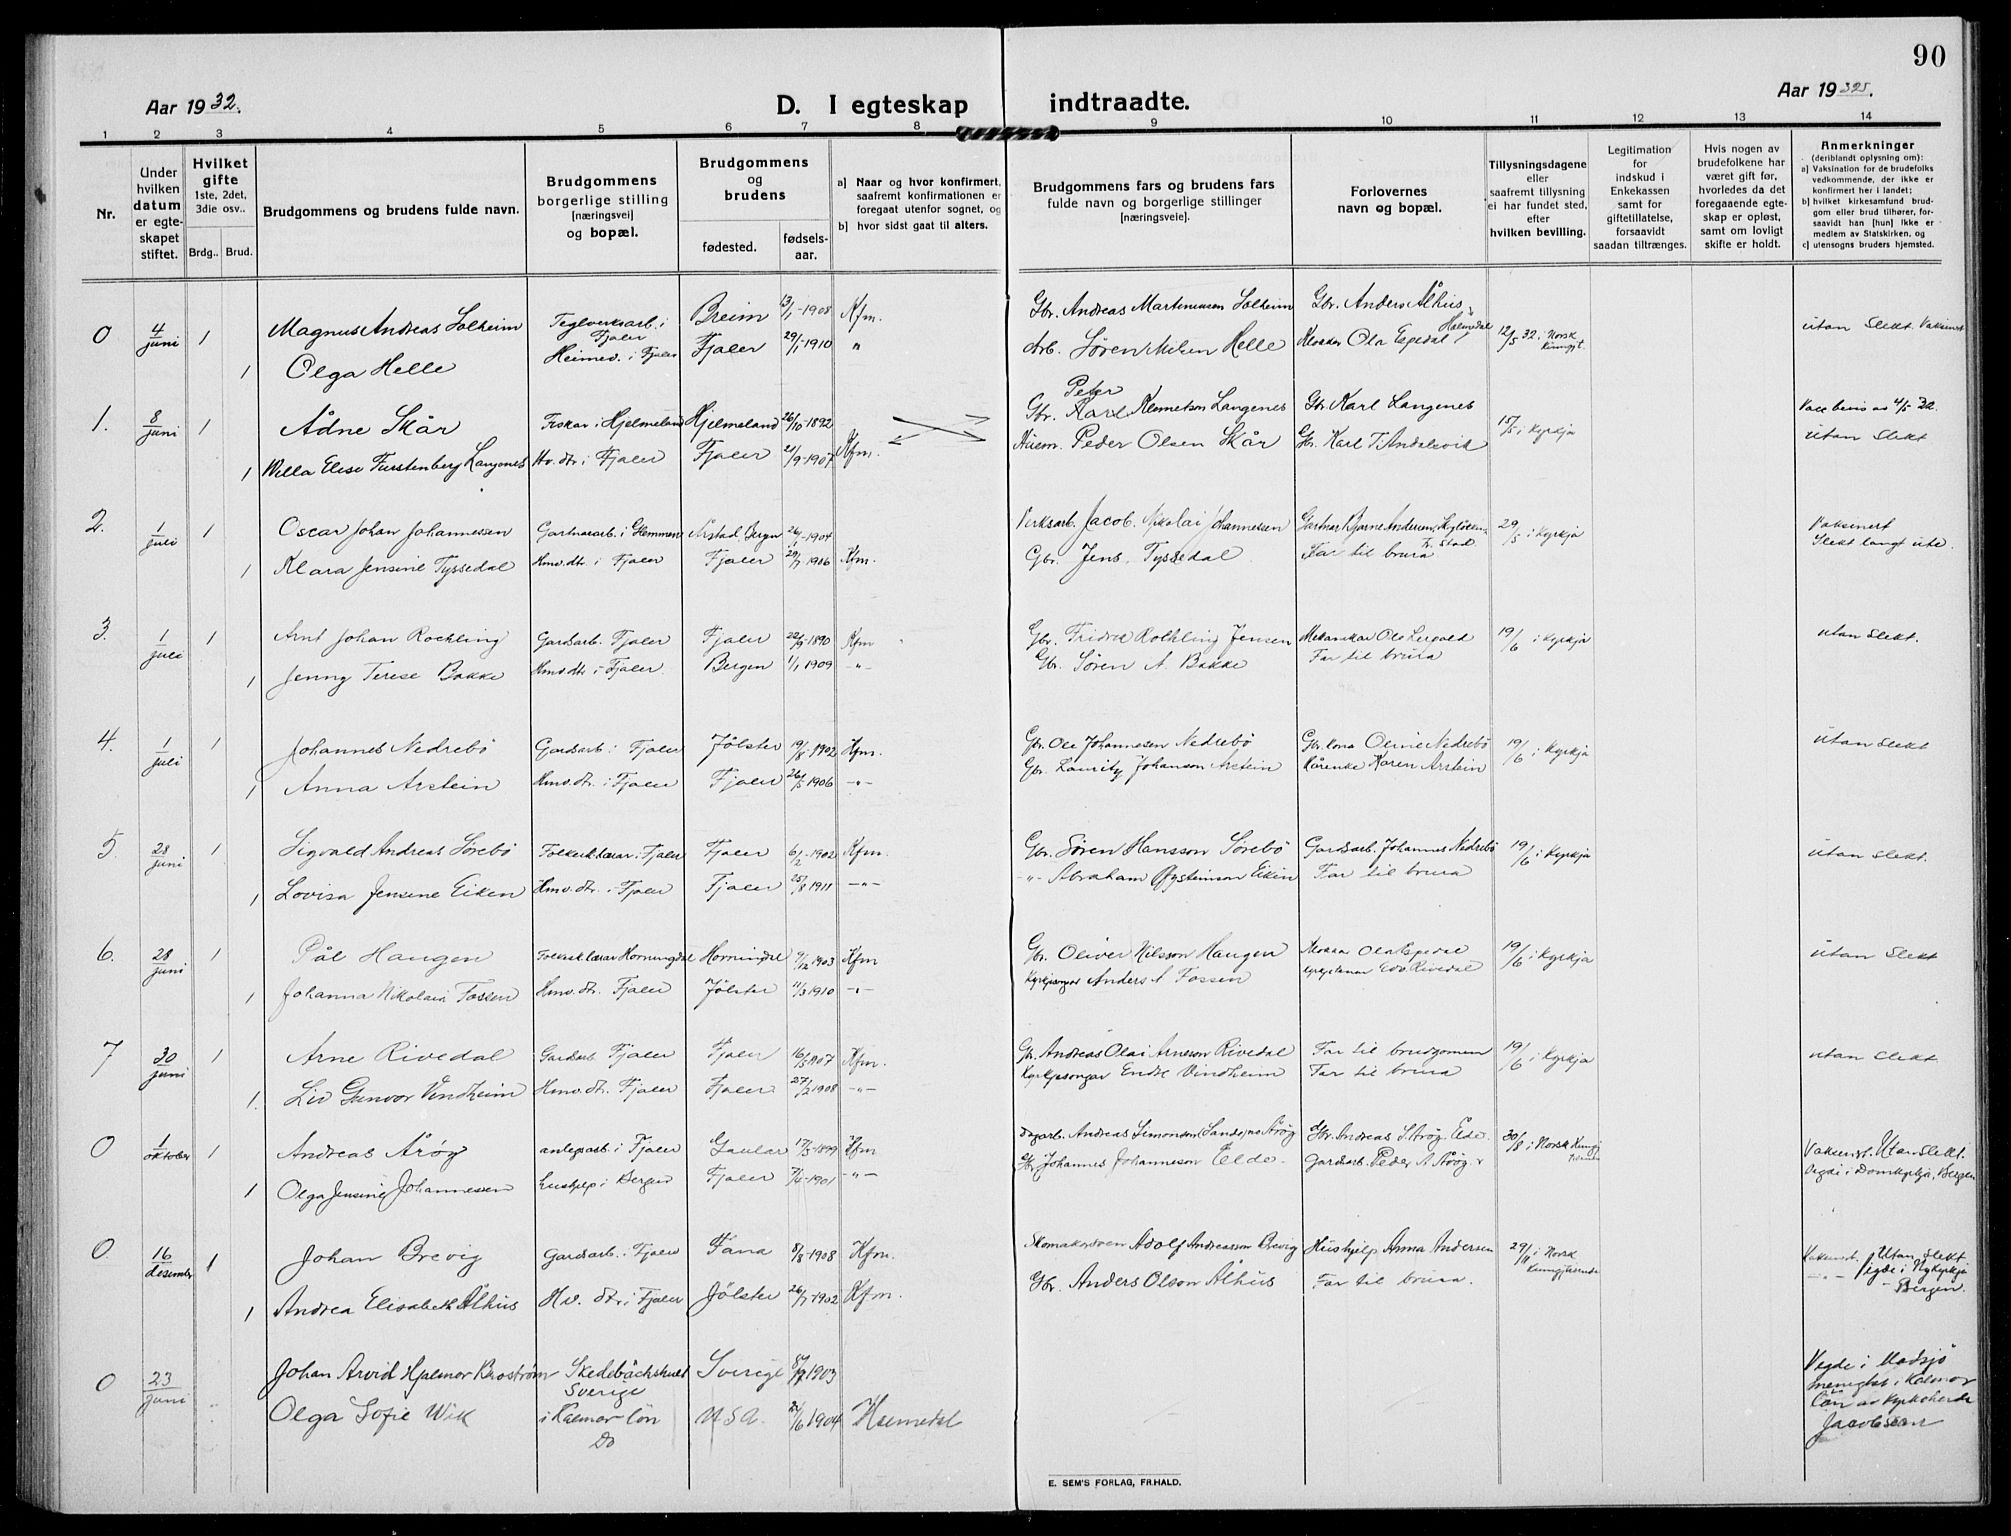 90
Aar 1932.
D. I egteskap indtraadte.
Aar 1932.
1 2 3 4 5 6 7 8 9 10 11 12 13 14
Nr.
Under hvilken datum er egteskapet stiftet.
Hvilket gifte 1ste, 2det, 3die osv..
Brdg.. Brud.
Brudgommens og brudens fulde navn.
Brudgommens borgerlige stilling [næringsvei] og bopæl.
Brudgommens og brudens
fødested.
fødselsaar.
a] Naar og hvor konfirmert, saafremt konfirmationen er foregaat utenfor sognet, og
b] hvor sidst gaat til alters.
Brudgommens fars og brudens fars fulde navn og borgerlige stillinger [næringsveie].
Forlovernes navn og bopæl.
Tillysningsdagene eller saafremt tillysning ei har fundet sted, efter hvilken bevilling.
Legitimation for indskud i Enkekassen samt for giftetillatelse, forsaavidt saadan tiltrænges.
Hvis nogen av brudefolkene har været gift før, hvorledes da det foregaaende egteskap er opløst, samt om lovligt skifte er holdt.
Anmerkninger
(deriblandt oplysning om):
a) Vaksination for de brudefolks vedkommende, der ikke er konfirmert her i landet;
b) hvilket kirkesamfund brudgom eller brud tilhører, forsaavidt han [hun] ikke er medlem av Statskirken, og
c) utensogns bruders hjemsted.
0 4/juni 1 Magnus Andreas Solheim Teglverksarb. i Fjaler Breim 13/1-1908 Kfm. Gbr. Andreas Martinussen Solheim Gbr. Anders Ålhus 12/5 32 i Norsk Kunngjt. utan Slekt. Vaksinert
1 Olga Helle Heimev. i Fjaler Fjaler 29/1 1910 " Arb. Søren Nilsen Helle Klokkar Ola Espedal, Holmedal
1. 8/juni 1 Ådne Skår Fiskar i Hjelmeland Hjelmeland 26/10-1892 Gbr. Peter Karl Klemetsen Langenes Gbr. Karl Langenes 15/5 i Kyrkja Vacc bevis av 4/5 32.
1 Willa Elise Furstenberg Langenes Hv. dtr. i Fjaler Fjaler 21/9-1907 Kfm. Husm. Peder Olsen Skår Gbr. Karl T. Andalsvik utan Slekt
2. 1/juli 1 Oscar Johan Johannessen Gartnararb. i Glemmen Årstad, Bergn 26/1-1904 Verksarb. Jacob Nikolai Johannessen Gartnar Bjarne Andersen, Fr. Stad 29/5 i Kyrkja Vaksinert
1 Klara Jensine Tyssedal Hmv. dtr. i Fjaler Fjaler 29/7 1906 Kfm. Gbr. Jens Tyssedal Far til brura Slekt langt ute.
3. 1/juli 1 Arnt Johan Rochling Gardsarb. Fjaler Fjaler 22/9-1890 Kfm Gbr. Jensen Mekanikar Ole Leryald 19/6 i Kyrkja utan Slekt.
1 Jenny Terese Bakke Hmv. dtr. i Fjaler. Bergen 1/1 1909 -"- Gbr. Søren A. Bakke Far til brura
4. 1/juli 1 Johannes Nedrebö Gardsarb. i Fjaler Jölster 19/8 1902 Kfm. Gbr. Ole Johannesen Nedrebö Gbr. kona Oline Nedrebö 19/6 i Kyrkja utan Slekt
1 Anna Arstein Hmv. dtr. i Fjaler Fjaler 26/5 1906 -"- Gbr. Lauritz Johanson Arstein Karen Arstein
5 28/juni 1 Sigvald Andreas Sörebö Folkesklærar i Fjaler Fjaler 6/2-1902 Kfm. Gbr. Sören Hansson Sörebö Gardsarb. Johannes Nedrebö 19/6 i Kyrkja utan Slekt.
1 Lovisa Jensine Eiken Hmv. dtr. i Fjaler Fjaler 25/8 1911 -"- -"- Abraham Øysteinson Eikin Far til brura
6. 28/juni 1 Pål Haugen Folkesklærar Horningdal Hornindal 9/12 1903 Kfm Gbr. Oliver Nilsson Haugen Klokkar Ola Espedal 19/6 i Kyrkja utan Slekt
1 Johanna Nikolai Fossen Hmv. dtr. Fjaler Jölster 11/3 1910 -"- Kyrkjesongar Anders A Fossen Edv. Rivedal
7 30/juni 1 Arne Rivedal Gardsarb Fjaler Fjaler 16/5 1907 Kfm. Gbr. Andreas Olai Arneson Rivedal Far til brudgomen 19/6 i Kyrkja utan Slekt
1. Liv Gunvor Vindheim Hmv. dtr. Fjaler Fjaler 27/2 1908 -"- Kyrkjesongar Endre Vindheim Far til brura
0 1/oktober 1 Andreas Årög anlegsarb. i Fjaler Gaular 17/5-1899 Kfm Dagarb. Andreas Simonson Årög Gbr. Andreas S. Årög Elde. 30/8 i Norsk Kunngj Vaksinert. Utan Slekt.
1 Olga Jensine Johannessen hushjelp i Bergen Fjaler 7/4-1901 -"- Gbr Johannes Johanneson Elde. Gardsarb. Peder A Årög Vigde i Domkyrkja, Bergen
0. 16/desember 1 Johan Brevig Gardsarb. i Fjaler Fana 8/8-1908 Kfm. Adolf Andreasson Brevig Hushjelp Anna Andersen 29/ i Norsk Kunngjerande Vaksinert. Utan Slekt
1 Andrea Elisabeth Ålhus Hv. dtr. i Fjaler Jölster 26/7-1902 Kfm. Gbr. Anders Olson Ålhus Far til brura. -"- Vigde i Nykyrkja - Bergen.
0 23/juni Johan Arvid Hjelmar Sverige Sverige 1903 Vigde i
Olga Sofie Wik i Kalmar län Do USA. 1904 Holmedal menighet i Kalmar Län av Kyrkoherde Jacobson
E. SEM'S FORLAG, FR.HALD.